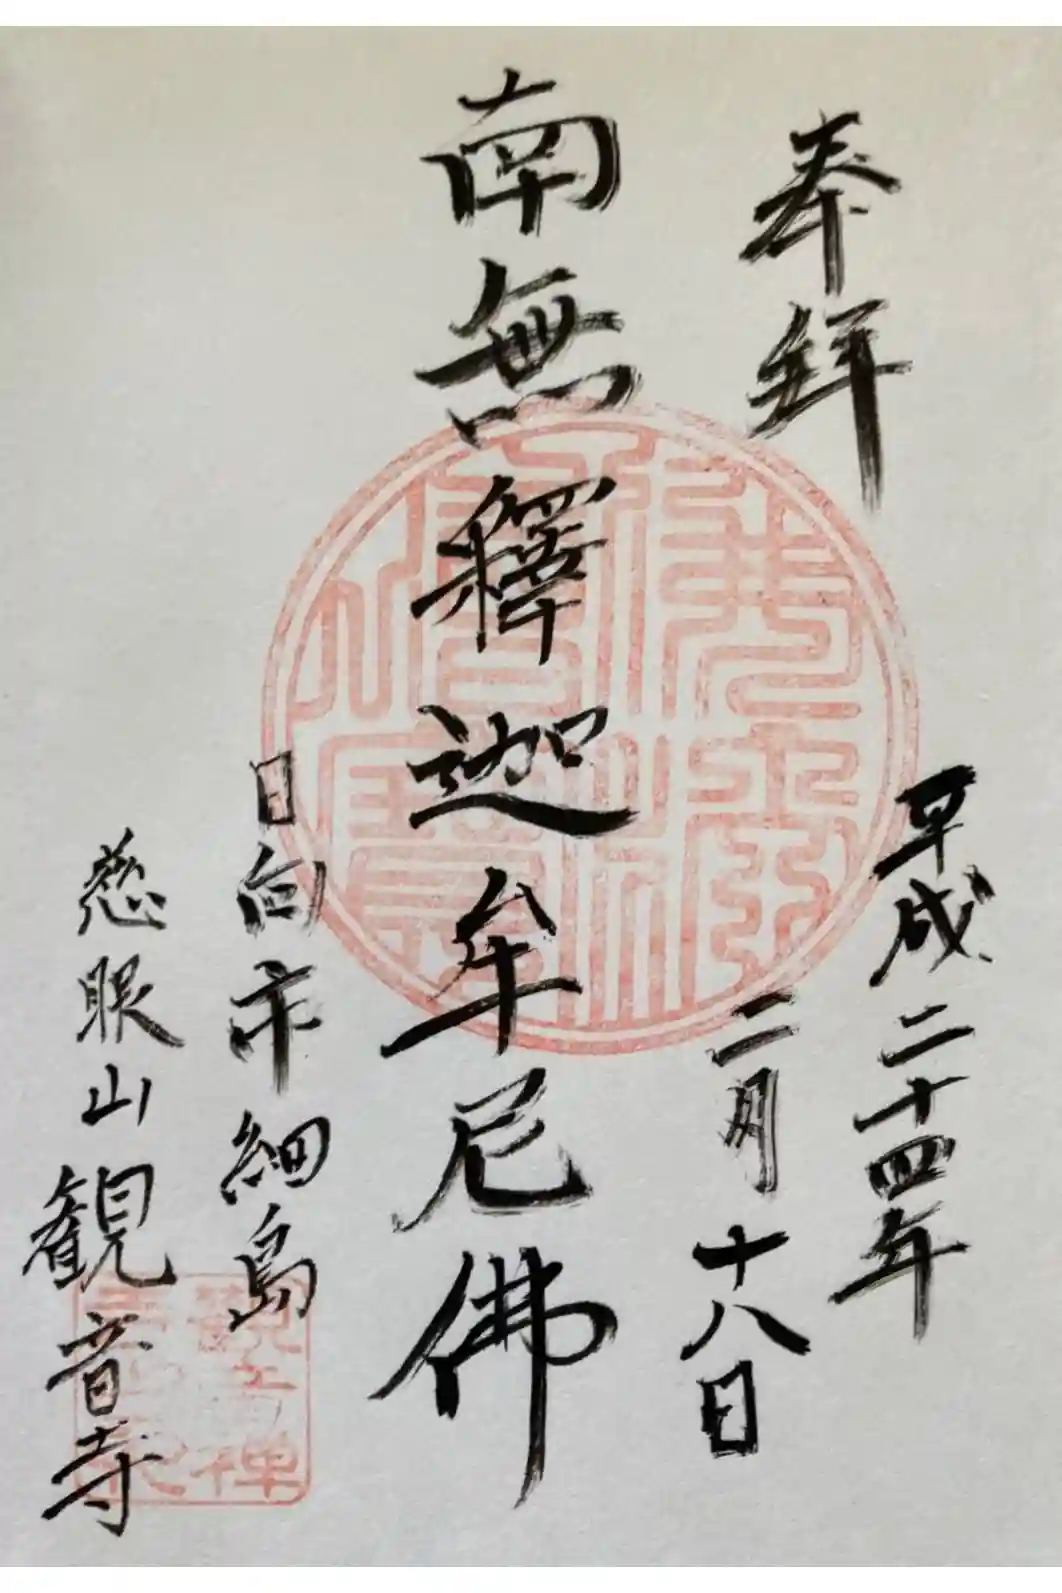 奉拜
平成二十四年
二月十八日
南無釋迦牟尼佛
日向市細島
慈眼山観音寺